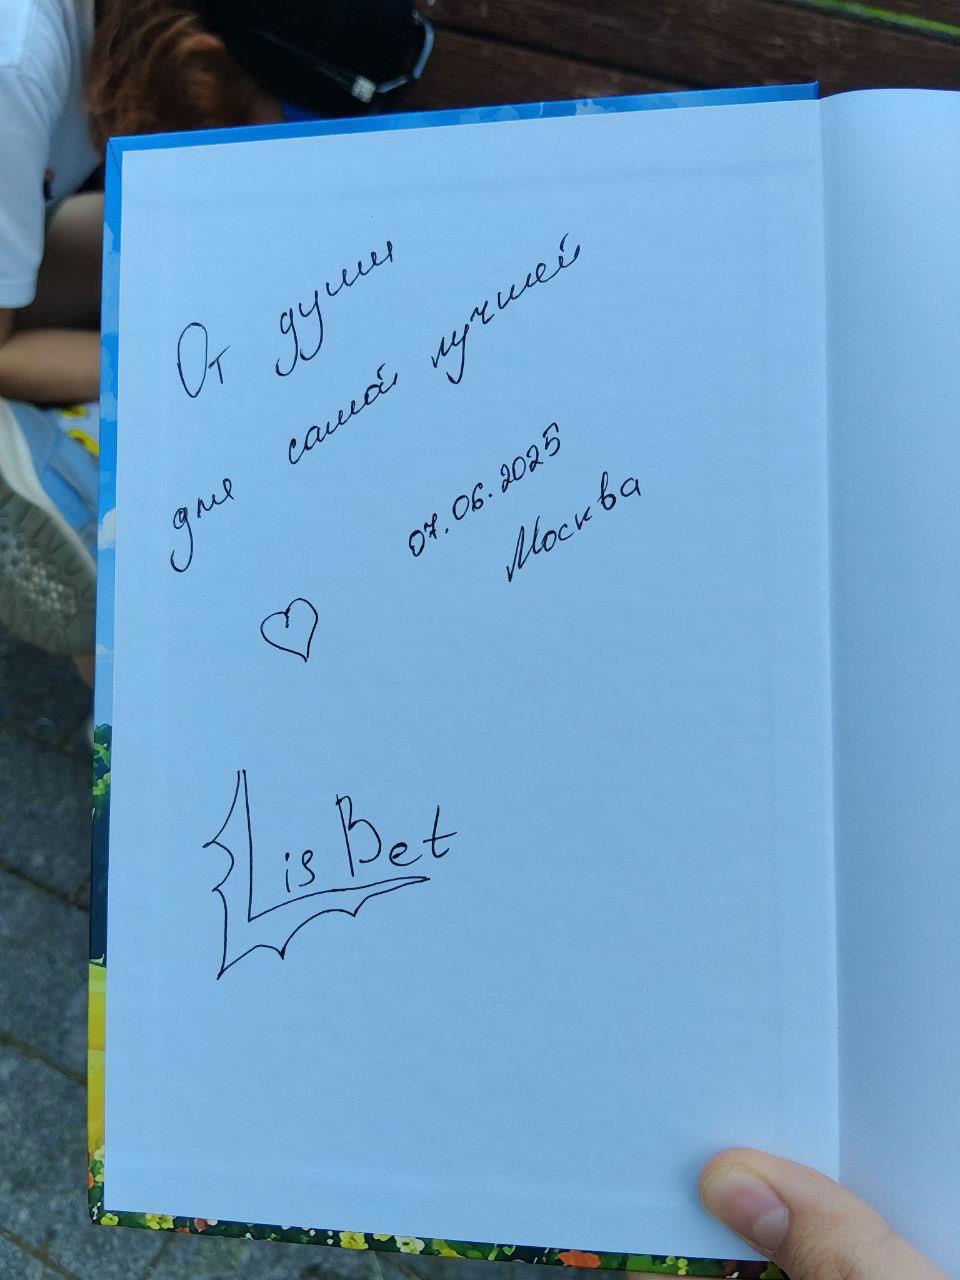 От души
для самой лучшей
07.06.2025
Москва
LisBet